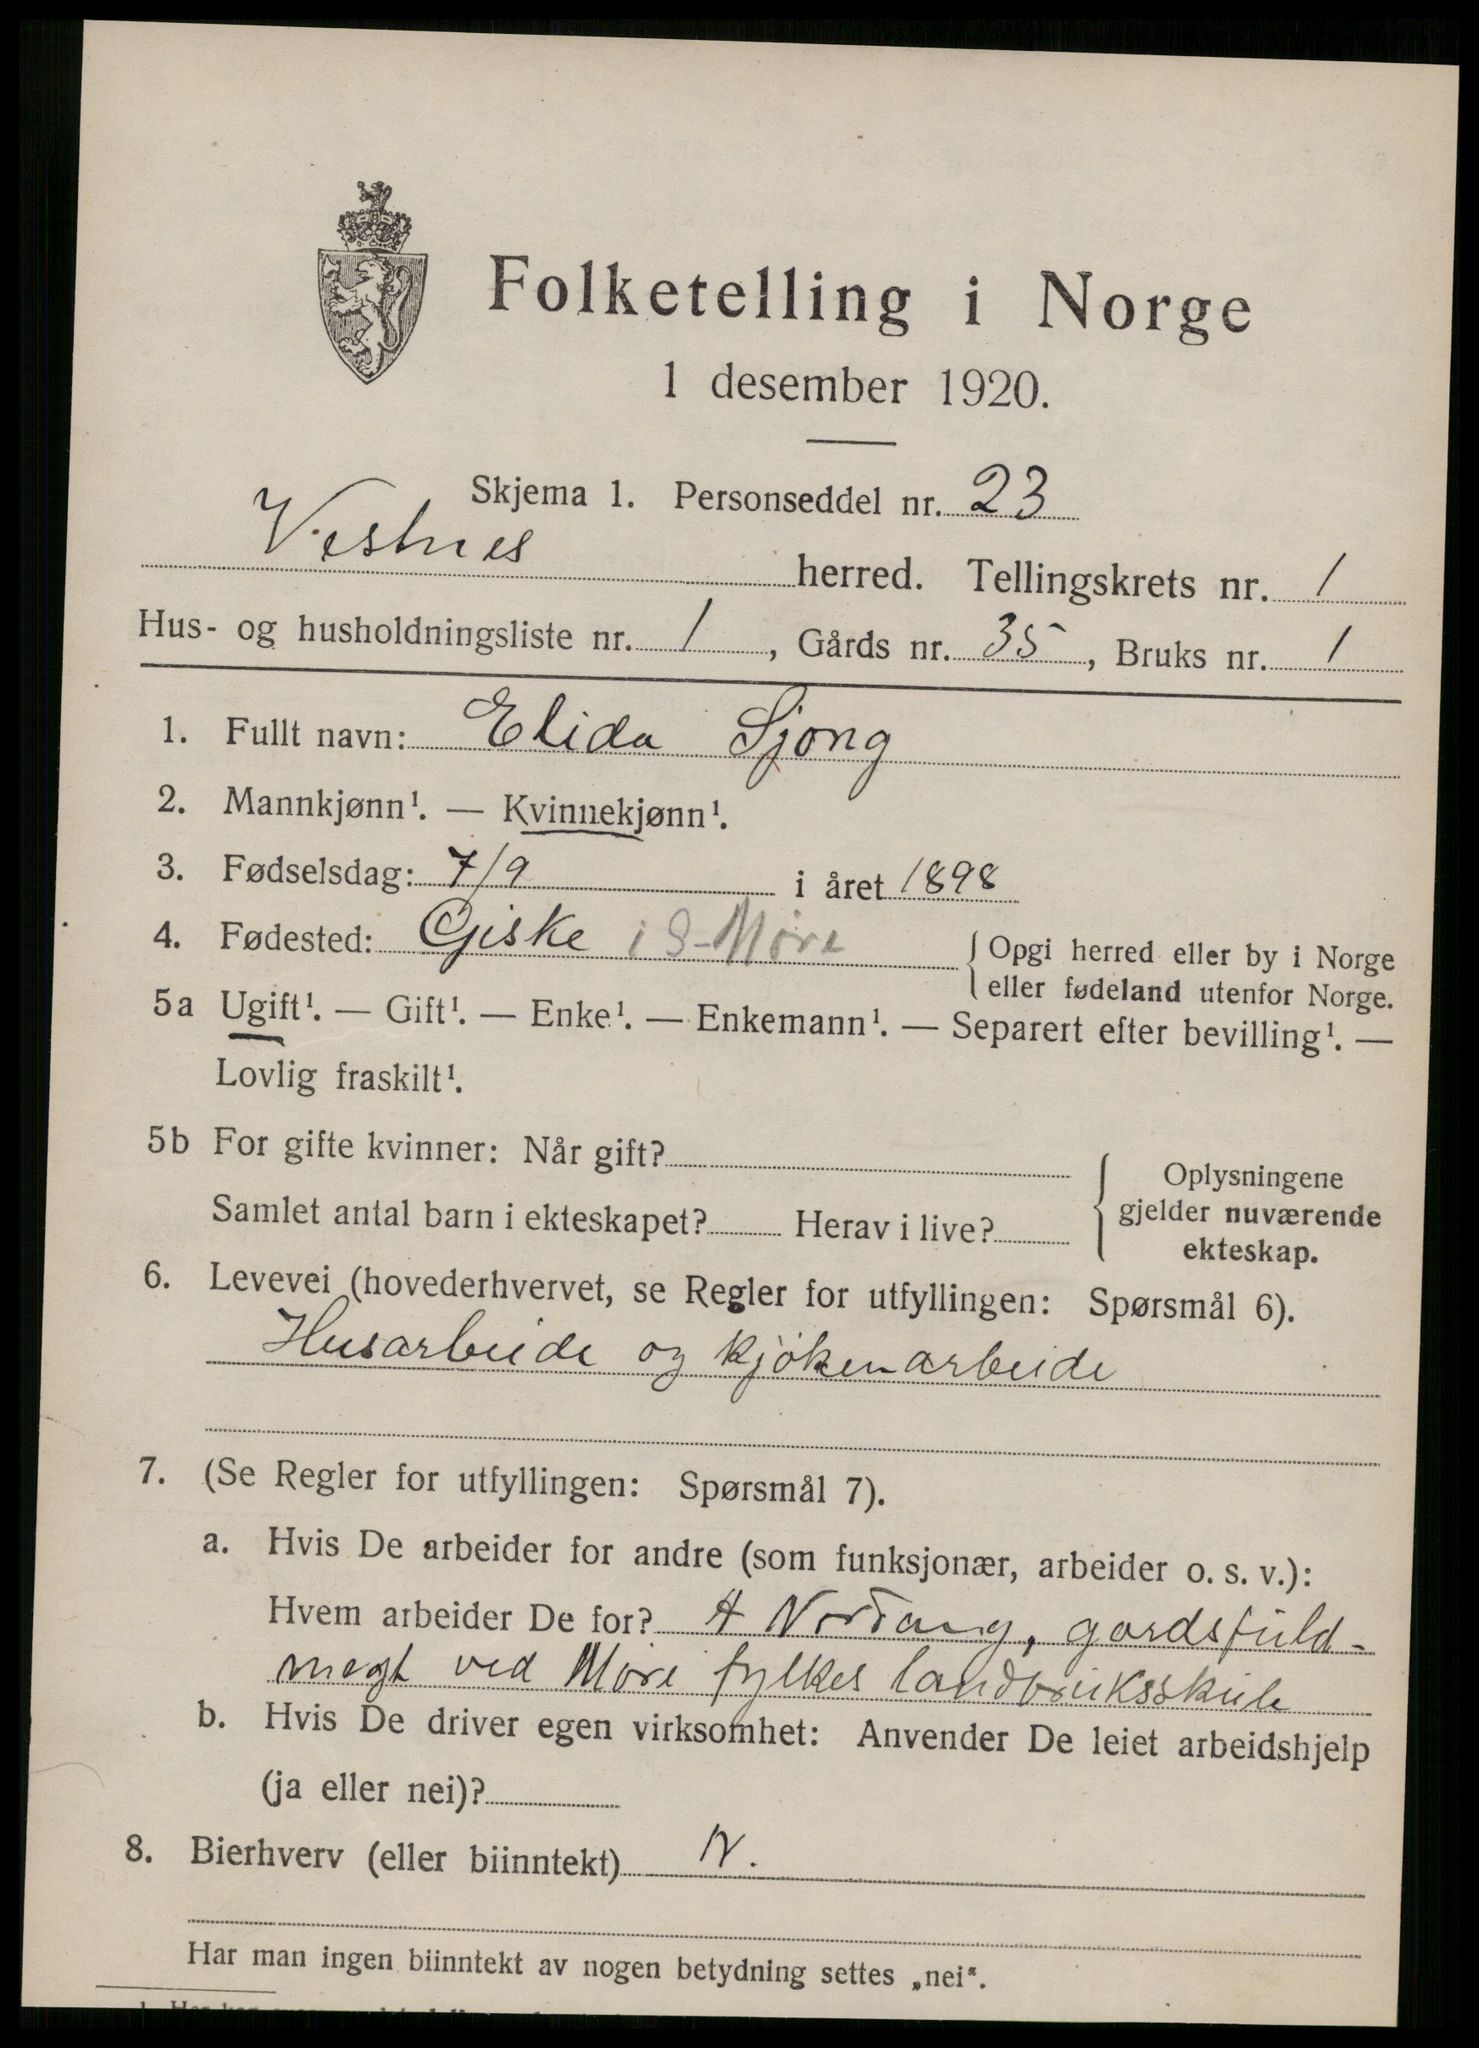 Folketelling i Norge
1 desember 1920.
Skjema 1. Personseddel nr. 23
Vestnes herred. Tellingskrets nr. 1
Hus- og husholdningsliste nr. 1, Gårds nr. 35, Bruks nr. 1
1. Fullt navn: Elida Sjong
2. Mannkjønn¹. — Kvinnekjønn¹.
3. Fødselsdag: 7/9 i året 1898
4. Fødested: Giske i S-Møre { Opgi herred eller by i Norge
eller fødeland utenfor Norge.
5a Ugift¹. — Gift¹. — Enke¹. — Enkemann¹. — Separert efter bevilling¹. —
Lovlig fraskilt¹.
5b For gifte kvinner: Når gift?
Samlet antal barn i ekteskapet? Herav i live?
{ Oplysningene
gjelder nuværende
ekteskap.
6. Levevei (hovederhvervet, se Regler for utfyllingen: Spørsmål 6).
Husarbeide og kjøkenarbeide
7. (Se Regler for utfyllingen: Spørsmål 7).
a. Hvis De arbeider for andre (som funksjonær, arbeider o. s. v.):
Hvem arbeider De for? A Nordang, gardsfuld-
megt ved Møre fylkes landbruksskule
b. Hvis De driver egen virksomhet: Anvender De leiet arbeidshjelp
(ja eller nei)?
8. Bierhverv (eller biinntekt) N.
Har man ingen biinntekt av nogen betydning settes „nei“.